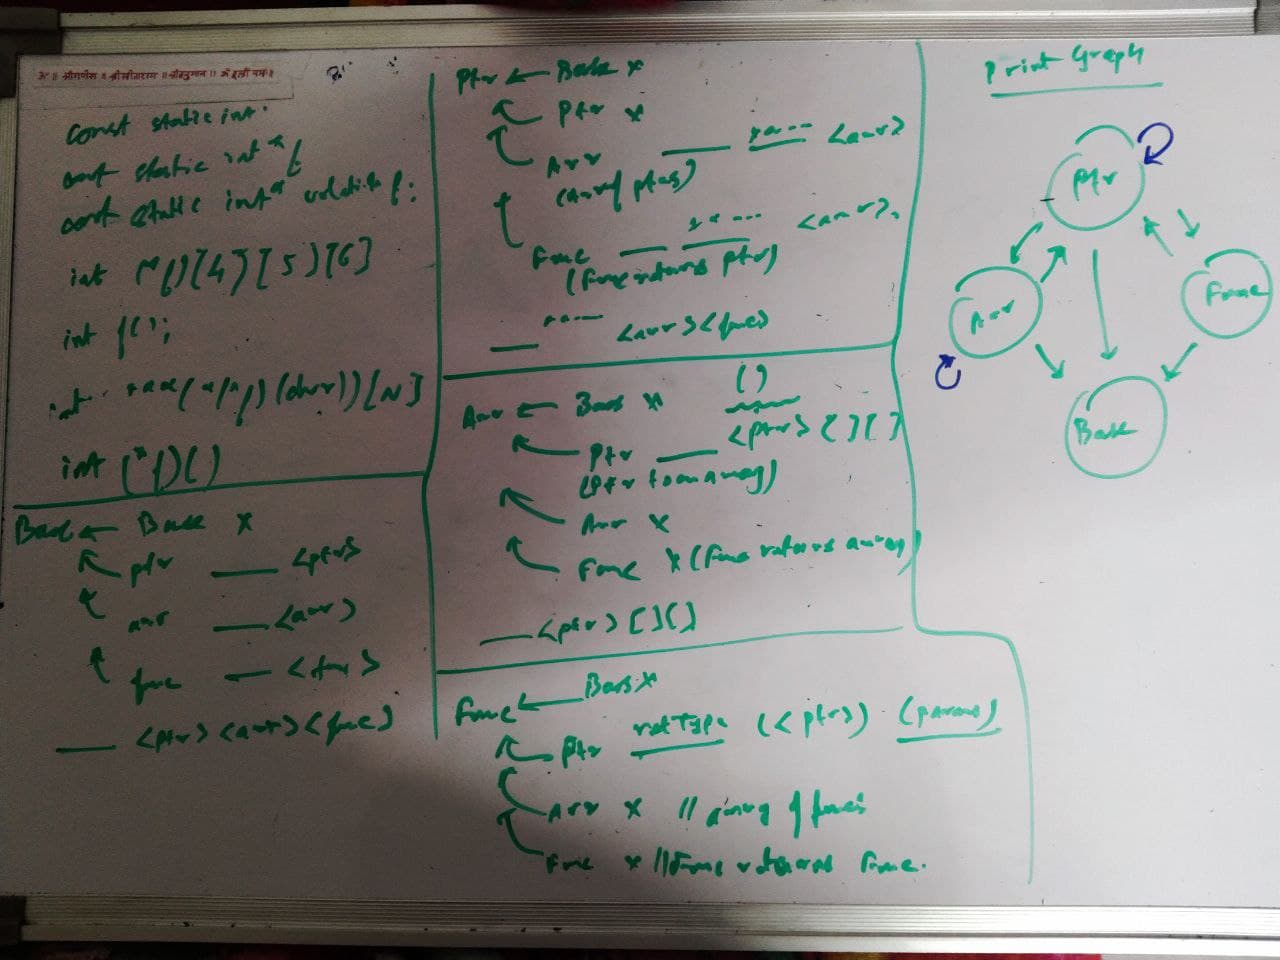 ॐ ॥ श्रीगणेश ॥ श्रीसीताराम ॥ श्रीहनुमान ॥
const static int
const static int *
const static int * volatile f;
int (*f)[4][5][6]
int f();
int (*f)()
Base ← Base x
ptr ___ <ptr>
arr ___ <arr>
func ___ <func>
___ <ptr> <arr> <func>
Ptr ← Base x
Ptr x
Arr ___ <arr>
(Arr of ptrs)
Func ___ <arr>,
(Func returns ptr)
___ <arr> <func>
Arr ← Base x ()
Ptr ___ <ptr> [][]
(Ptr to an array)
Arr x
Func x (Func returns array)
___ <ptr> [][]
Func ← Base x
Ptr retType (<ptr>) (params)
Arr x // array of funcs
Func x // Func returns Func.
Print Graph
Ptr
Arr
Func
Base